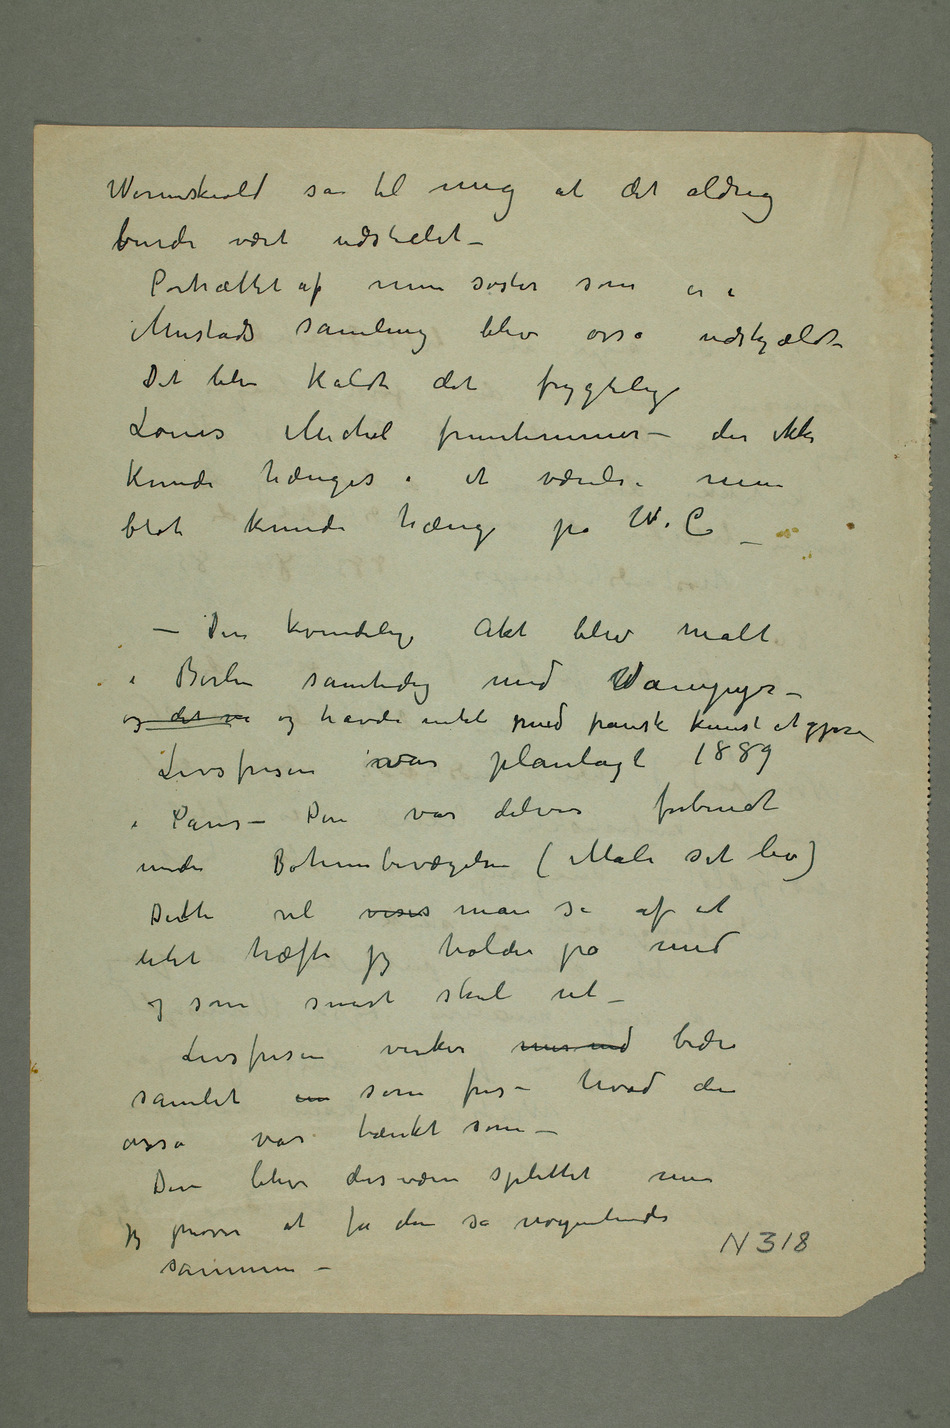 Wernskiold sa til mig at det aldrig
burde vært udstillet –
Portrættet af min søster som er i
Mustads samling blev osså udskjældt
Det blev kaldt det frygtelige
Louis Michel fruentimmer – der ikke
kunde hænges i et værelse men
blot kunde hænge på W. C –
– Den kvindelige Akt blev malt
i Berlin samtidig med Wampyr –
og det va og havde intet med fransk kunst at gjøre
Livsfrisen var planlagt 1889
i Paris – Den var delvis forbundt
under Bohembevægelsen (Male sit liv)
Dette vil vises man se af et
litet hæfte jeg holder på med
og som snart skal ut –
Livsfrisen virker mer med bedre
samlet en som fris – hvad den
osså var tænkt som –
Den blev desværre splittet men
jeg prøver at få den så nogenlunde
sammen –
N 318